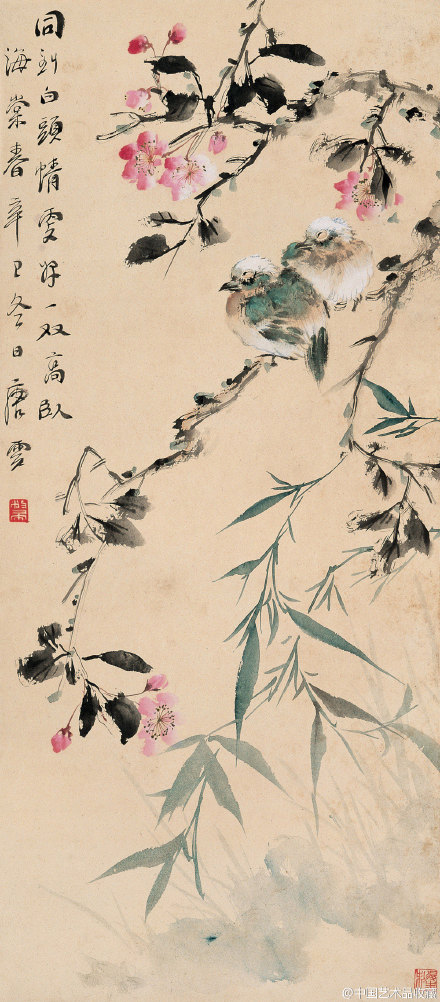 同到白頭情更好一双高卧
海棠春辛巳冬日唐雲
@中国艺术品收藏